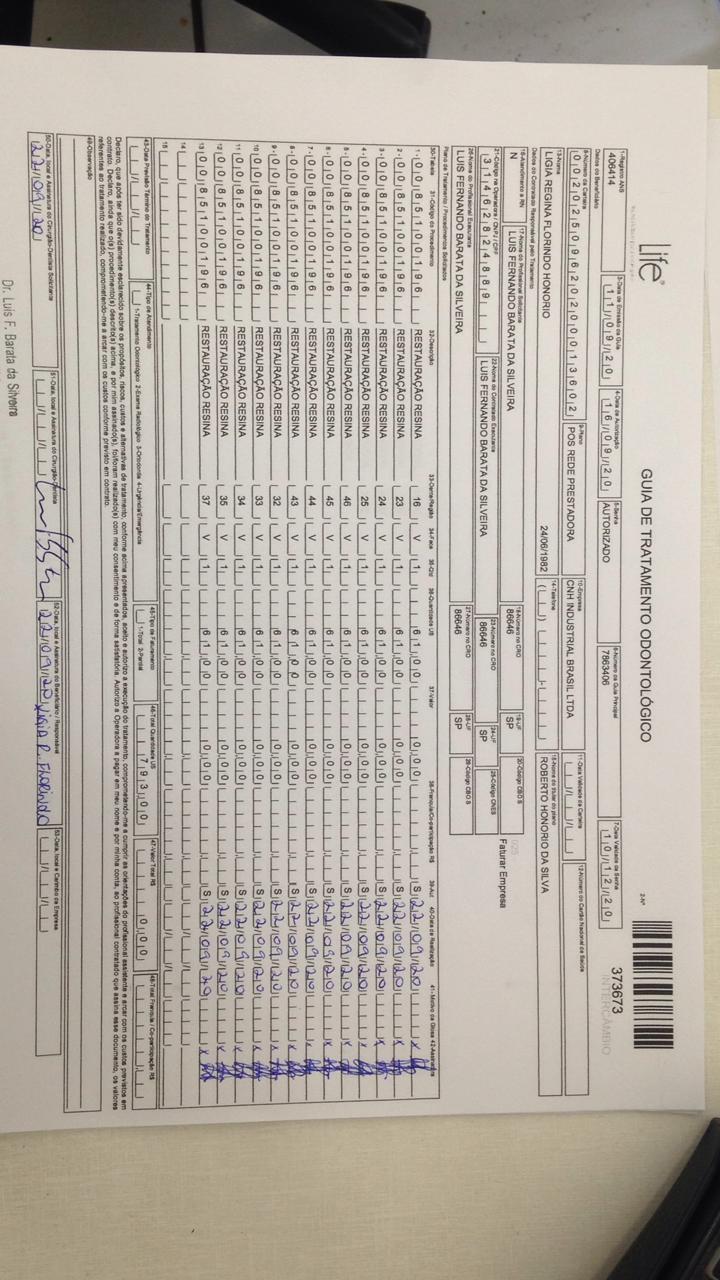 Life
GUIA DE TRATAMENTO ODONTOLÓGICO
2-Nº
373673
INTERCÂMBIO
1-Registro ANS
406414
3-Data de Emissão da Guia
11/09/20
4-Data de Autorização
16/09/20
5-Senha
AUTORIZADO
6-Número da Guia Principal
7863406
7-Data Validade da Senha
10/12/20
Dados do Beneficiário
8-Número da Carteira
00202509620200013602
9-Plano
POS REDE PRESTADORA
10-Empresa
CNH INDUSTRIAL BRASIL LTDA
11-Data Validade da Carteira
12-Número do Cartão Nacional de Saúde
13-Nome
LIGIA REGINA FLORINDO HONORIO
24/06/1982
14-Telefone
15-Nome do titular do plano
ROBERTO HONORIO DA SILVA
Dados do Contratado Responsável pelo Tratamento
16-Atendimento a RN
N
17-Nome do Profissional Solicitante
LUIS FERNANDO BARATA DA SILVEIRA
18-Número no CRO
86646
19-UF
SP
20-Código CBO S
Faturar Empresa
21-Código na Operadora / CNPJ / CPF
31462824889
22-Nome do Contratado Executante
LUIS FERNANDO BARATA DA SILVEIRA
23-Número no CRO
86646
24-UF
SP
25-Código CNES
26-Nome do Profissional Executante
LUIS FERNANDO BARATA DA SILVEIRA
27-Número no CRO
86646
28-UF
SP
29-Código CBO S
Plano de Tratamento / Procedimentos Solicitados
30-Tabela 31-Código do Procedimento 32-Descrição 33-Dente/Região 34-Face 35-Qtd 36-Quantidade US 37-Valor 38-Franquia/Co-participação R$ 39-Aut 40-Data de Realização 41-Motivo da Glosa 42-Assinatura
1- 00 85100196 RESTAURAÇÃO RESINA 16 V 1 61,00 0,00 S 22/09/20
2- 00 85100196 RESTAURAÇÃO RESINA 23 V 1 61,00 0,00 S 22/09/20
3- 00 85100196 RESTAURAÇÃO RESINA 24 V 1 61,00 0,00 S 22/09/20
4- 00 85100196 RESTAURAÇÃO RESINA 25 V 1 61,00 0,00 S 22/09/20
5- 00 85100196 RESTAURAÇÃO RESINA 46 V 1 61,00 0,00 S 22/09/20
6- 00 85100196 RESTAURAÇÃO RESINA 45 V 1 61,00 0,00 S 22/09/20
7- 00 85100196 RESTAURAÇÃO RESINA 44 V 1 61,00 0,00 S 22/09/20
8- 00 85100196 RESTAURAÇÃO RESINA 43 V 1 61,00 0,00 S 22/09/20
9- 00 85100196 RESTAURAÇÃO RESINA 32 V 1 61,00 0,00 S 22/09/20
10 00 85100196 RESTAURAÇÃO RESINA 33 V 1 61,00 0,00 S 22/09/20
11 00 85100196 RESTAURAÇÃO RESINA 34 V 1 61,00 0,00 S 22/09/20
12 00 85100196 RESTAURAÇÃO RESINA 35 V 1 61,00 0,00 S 22/09/20
13 00 85100196 RESTAURAÇÃO RESINA 37 V 1 61,00 0,00 S 22/09/20
14
15
43-Data Prevista Término do Tratamento
44-Tipo de Atendimento
1-Tratamento Odontológico 2-Exame Radiológico 3-Ortodontia 4-Urgência/Emergência
45-Tipo de Faturamento
1-Total 2-Parcial
46-Total Quantidade US
793,00
47-Valor Total R$
0,00
48-Total Franquia / Co-participação R$
Declaro, que após ter sido devidamente esclarecido sobre os propósitos, riscos, custos e alternativas de tratamento, conforme acima apresentados, aceito e autorizo a execução do tratamento, comprometendo-me a cumprir as orientações do profissional assistente e arcar com os custos previstos em
contrato. Declaro, ainda que o(s) procedimento(s) descrito(s) acima, e por mim assinado(s), foi/foram realizado(s) com meu consentimento e de forma satisfatória. Autorizo a Operadora a pagar em meu nome e por minha conta, ao profissional contratado que assina esse documento, os valores
referentes ao tratamento realizado, comprometendo-me a arcar com os custos conforme previsto em contrato.
49-Observação
50-Data, local e Assinatura do Cirurgião-Dentista Solicitante
22/09/20
51-Data, local e Assinatura do Cirurgião-Dentista
52-Data, local e Assinatura do Beneficiário / Responsável
22/09/20 Ligia R. Florindo
53-Data, local e Carimbo da Empresa
Dr. Luis F. Barata da Silveira